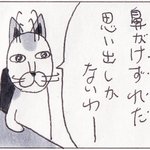 鼻がけずれた
思い出しか
ないわー